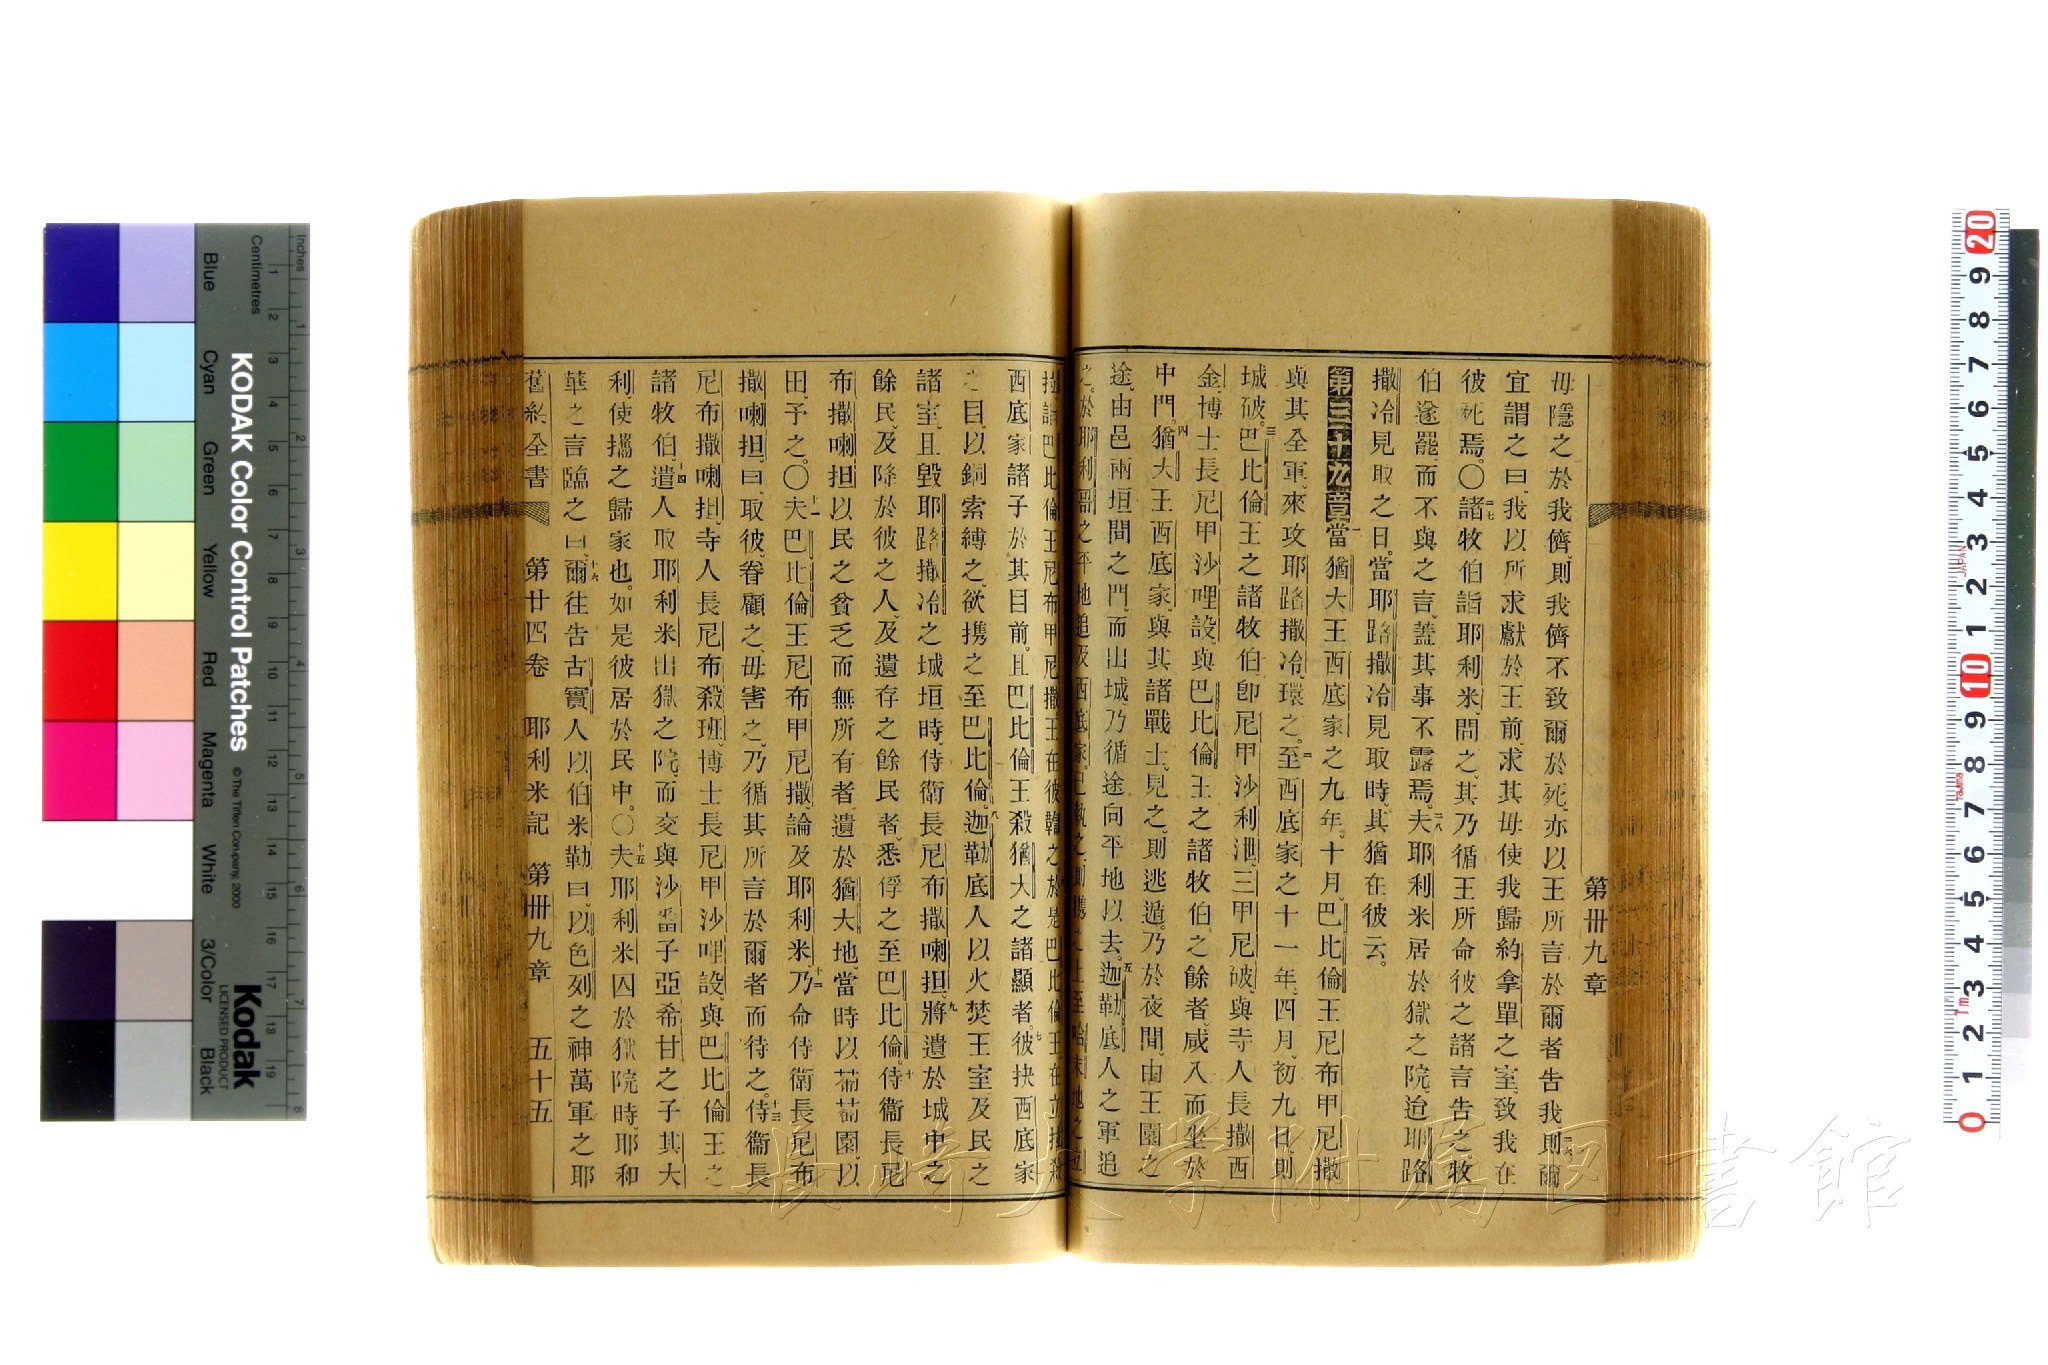 第卅九章
毋隱之於我儕、則我儕不致爾於死、亦以王所言於爾者告我、則爾
宜謂之曰、我以所求獻於王前、求其毋使我歸約拿單之室、致我在
彼死焉。〇諸牧伯詣耶利米、問之、其乃循王所命彼之諸言告之、牧
伯遂罷、而不與之言、蓋其事不露焉。夫耶利米居於獄之院、迨耶路
撒冷見取之日。當耶路撒冷見取時、其猶在彼云。
第三十九章 當猶大王西底家之九年、十月、巴比倫王尼布甲尼撒
與其全軍、來攻耶路撒冷、環之。至西底家之十一年、四月、初九日、則
城破。巴比倫王之諸牧伯卽尼甲沙利泄、三甲尼破、與寺人長撒西
金、博士長尼甲沙哩設、與巴比倫王之諸牧伯之餘者、咸入而坐於
中門。猶大王西底家、與其諸戰士、見之、則逃遁。乃於夜間、由王園之
途、由邑兩垣間之門、而出城、乃循途向平地以去。迦勒底人之軍追
之、於耶利哥之平地追及西底家、已執之、則攜之上至哈末地之立
拉、詣巴比倫王尼布甲尼撒、王在彼讞之。於是巴比倫王在立拉殺
西底家諸子於其目前。且巴比倫王殺猶大之諸顯者。彼抉西底家
之目、以銅索縛之、欲携之至巴比倫。迦勒底人以火焚王室及民之
諸室、且毀耶路撒冷之城垣時、侍衛長尼布撒喇担、將遺於城中之
餘民、及降於彼之人、及遺存之餘民者、悉俘之至巴比倫。侍衞長尼
布撒喇担以民之貧乏而無所有者、遺於猶大地、當時以葡萄園、以
田、予之。〇夫巴比倫王尼布甲尼撒、論及耶利米、乃命侍衛長尼布
撒喇担、曰、取彼、眷顧之、毋害之、乃循其所言於爾者而待之。侍衞長
尼布撒喇担、寺人長尼布殺班、博士長尼甲沙哩設、與巴比倫王之
諸牧伯、遣人取耶利米出獄之院、而交與沙番子亞希甘之子其大
利、使攜之歸家也。如是彼居於民中。〇夫耶利米囚於獄院時、耶和
華之言臨之曰、爾往告古實人以伯米勒曰、以色列之神萬軍之耶
舊約全書 第廿四卷 耶利米記 第卅九章 五十五
KODAK Color Control Patches
© The Tiffen Company, 2000
Kodak
LICENSED PRODUCT
Inches
Centimetres
Blue
Cyan
Green
Yellow
Red
Magenta
White
3/Color
Black
長崎大学附属図書館